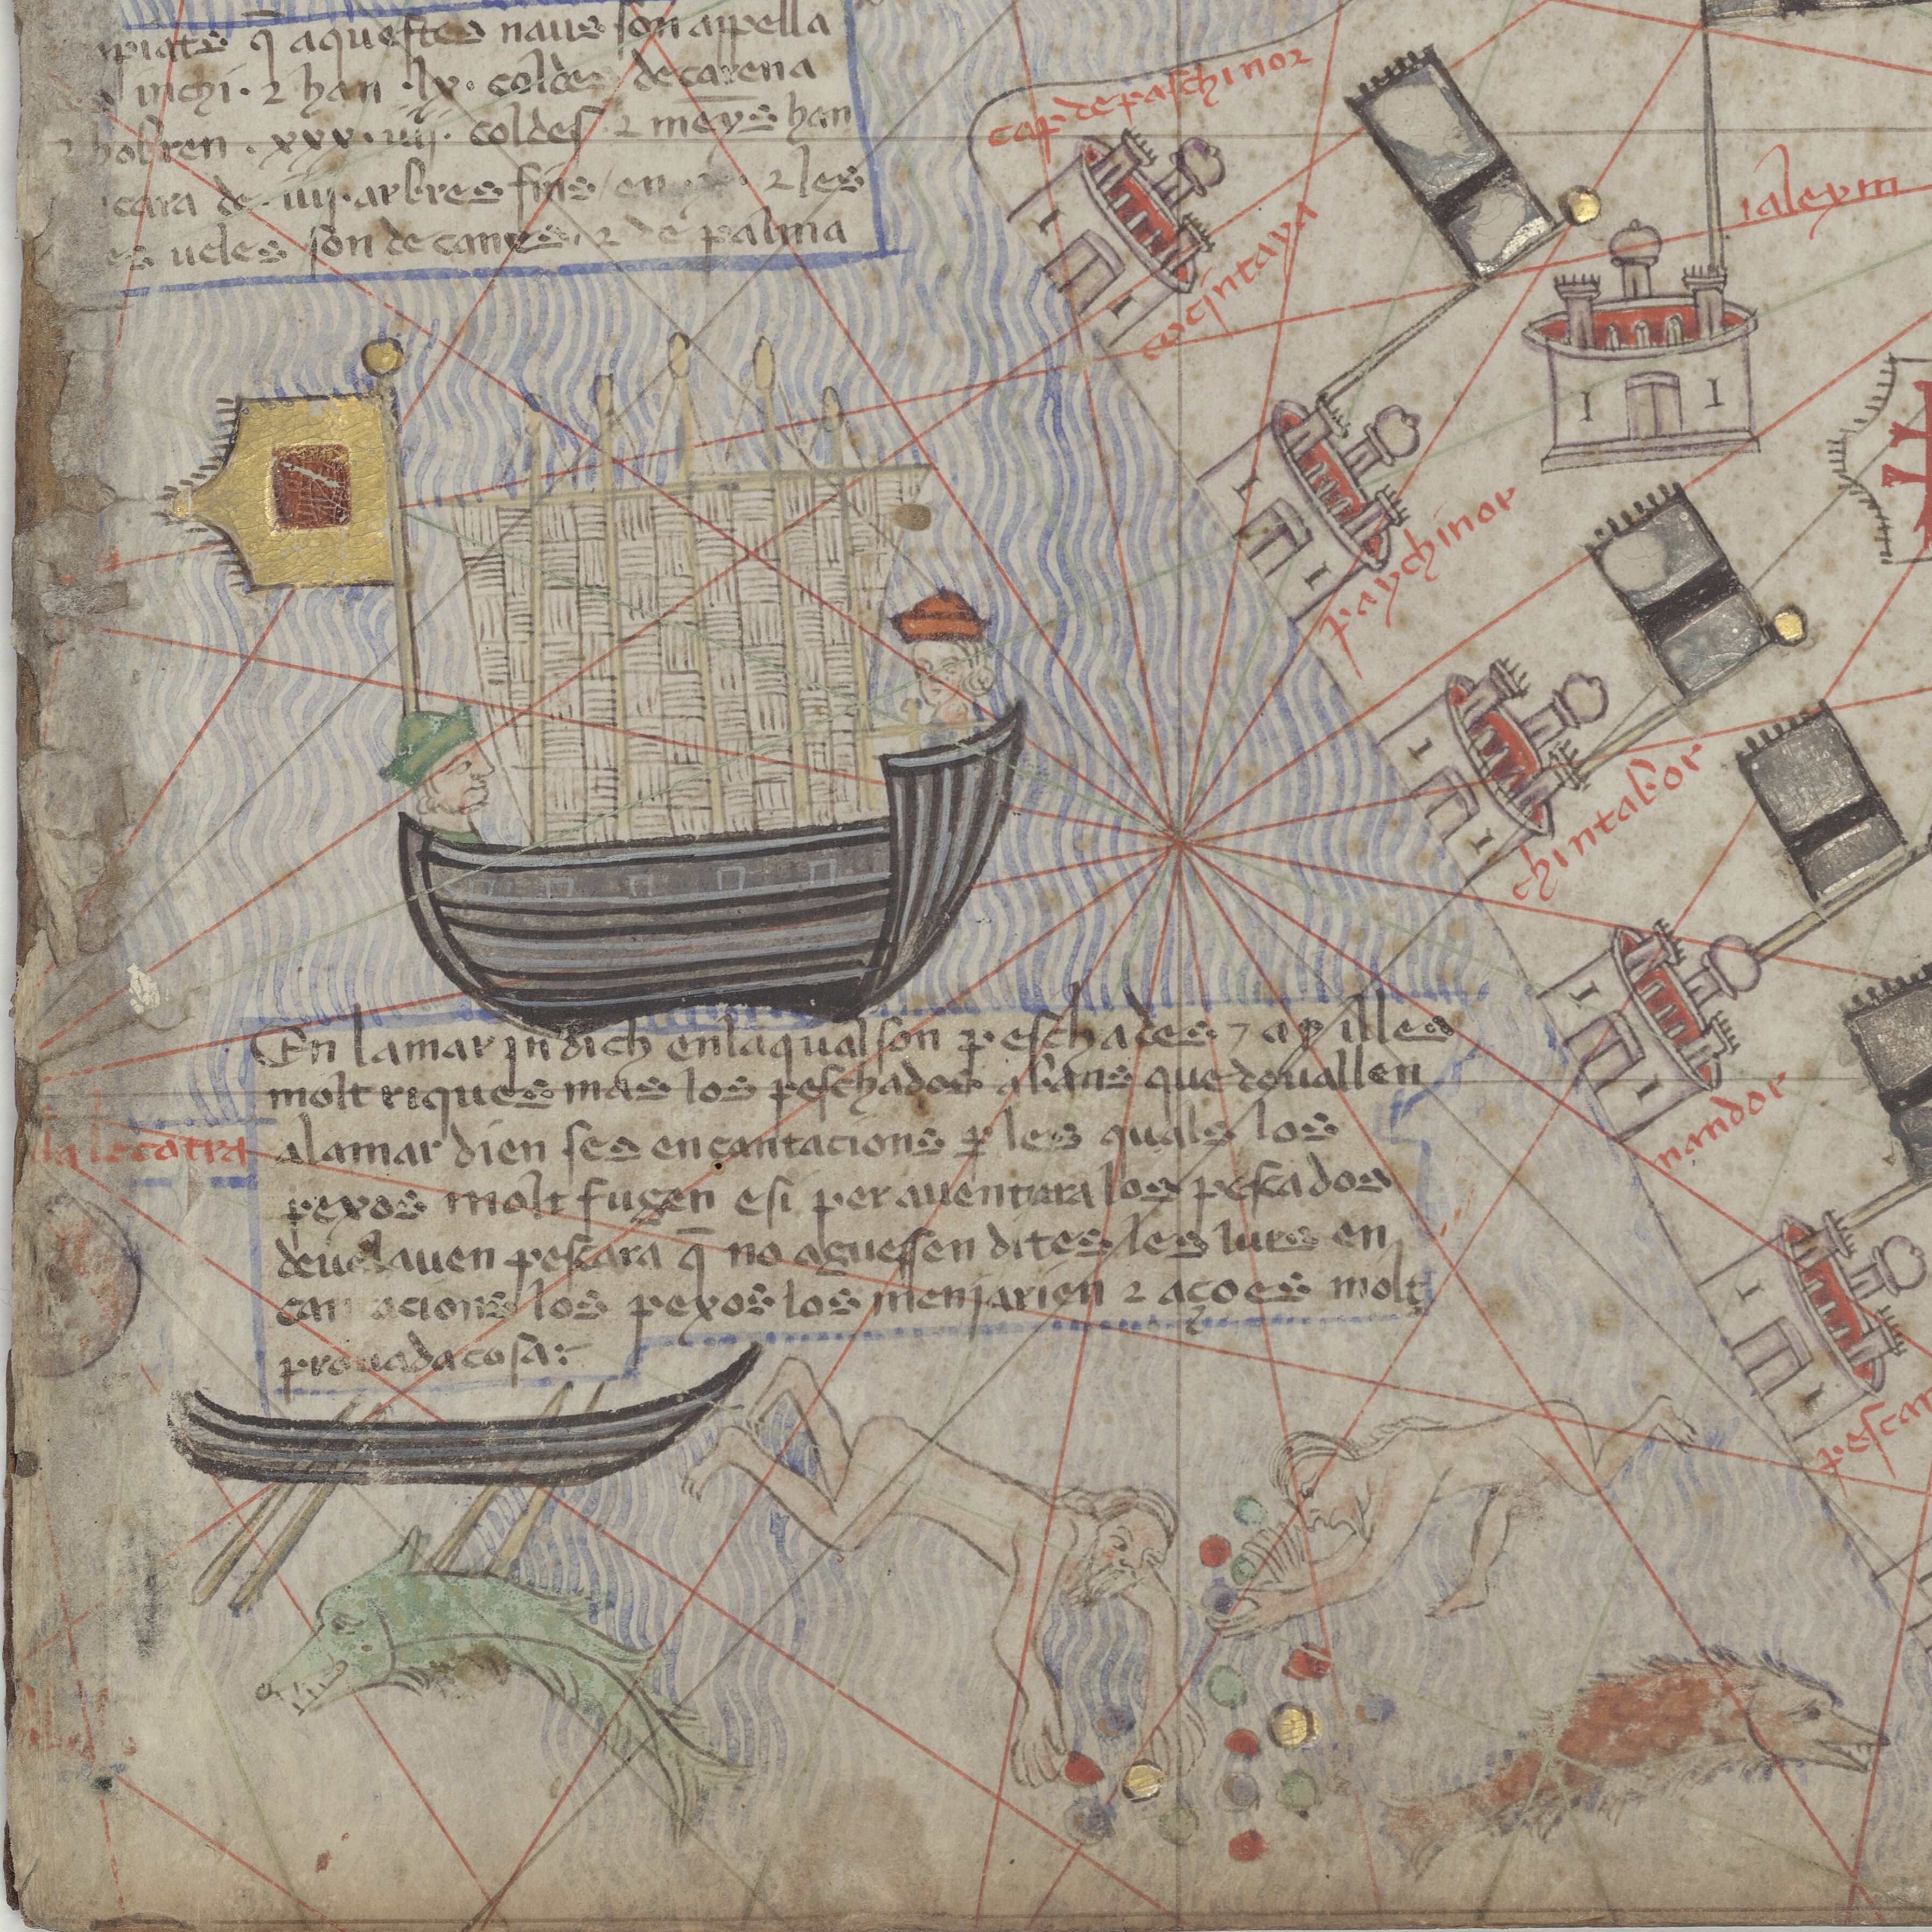 q̄ aquestes naus son appella
inchi · 2 han · lx · coldes de carena
hobren · xxx · iiij · coldes · 2 meys han
cara de · iiij · arbres fins en · x · 2 les
ueles son de canyes · 2 de palma
cap de paschinor
cocintaya
ialeym
paychinor
chintabor
nandor
pescan
En lamar indich enlaqual son peschades · 7 ay illes
molt riques mas los peschados abans que douallen
alamar dien ses encantacions p les quals los
pexos molt fugen e si per auentura los pescados
deuelauen pescara q̄ no aguessen dites les lurs en
cantacions los pexos los meniarien 2 aço es molt
prouada cosa: